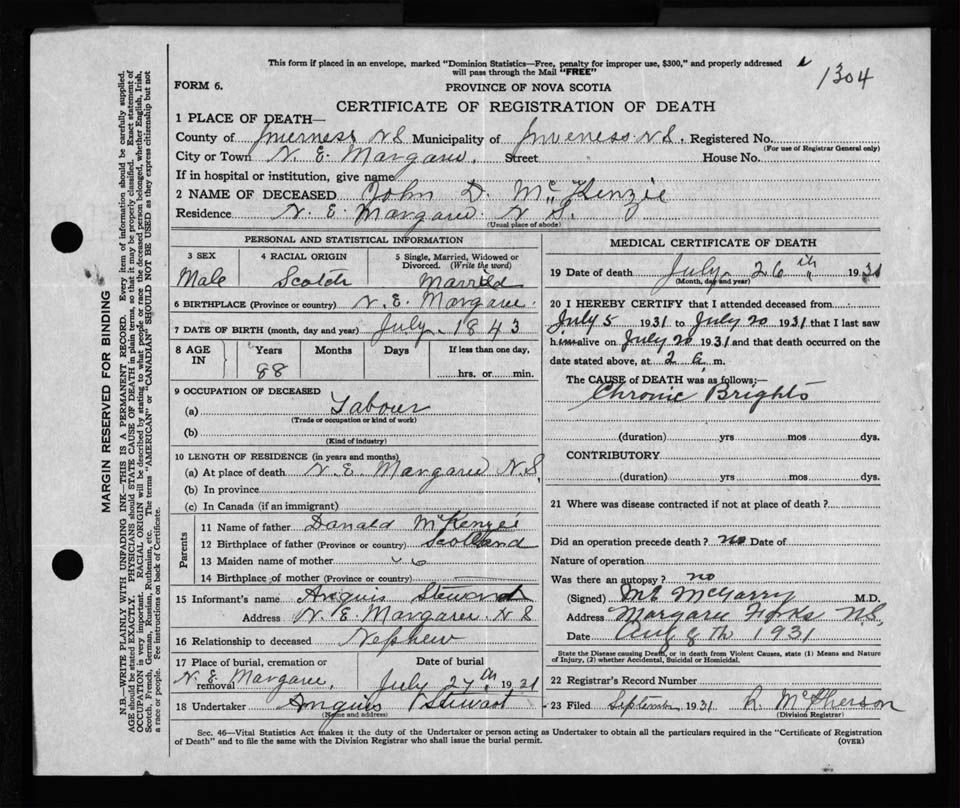 This form if placed in an envelope, marked "Dominion Statistics—Free, penalty for improper use, $300," and properly addressed
will pass through the Mail "FREE"
1304
FORM 6.
PROVINCE OF NOVA SCOTIA
CERTIFICATE OF REGISTRATION OF DEATH
1 PLACE OF DEATH—
County of Inverness N S Municipality of Inveness N S. Registered No.
(For use of Registrar General only)
City or Town N. E. Margaree. Street House No.
If in hospital or institution, give name
2 NAME OF DECEASED John D. McKenzie
Residence N. E. Margaree N S.
(Usual place of abode)
PERSONAL AND STATISTICAL INFORMATION
3 SEX 4 RACIAL ORIGIN 5 Single, Married, Widowed or Divorced. (Write the word)
Male Scotch Married
6 BIRTHPLACE (Province or country) N. E. Margaree.
7 DATE OF BIRTH (month, day and year) July. 1843
8 AGE IN Years Months Days If less than one day,
88 hrs. or min.
9 OCCUPATION OF DECEASED
(a) Labour
(Trade or occupation or kind of work)
(b)
(Kind of industry)
10 LENGTH OF RESIDENCE (in years and months)
(a) At place of death N. E Margaree N.S,
(b) In province
(c) In Canada (if an immigrant)
Parents
11 Name of father Donald McKenzie
12 Birthplace of father (Province or country) Scotland
13 Maiden name of mother
14 Birthplace of mother (Province or country)
15 Informant's name Anguis Stewart
Address N. E Margaree N S
16 Relationship to deceased Nephew
17 Place of burial, cremation or removal Date of burial
N. E. Margaree, July 27th, 1931
18 Undertaker Anguis Stewart
(Name and address)
MEDICAL CERTIFICATE OF DEATH
19 Date of death July 26th 1931
(Month, day and year)
20 I HEREBY CERTIFY that I attended deceased from
July 5 1931 to July 20 1931 that I last saw
him alive on July 20 1931 and that death occurred on the
date stated above, at 2 a. m.
The CAUSE of DEATH was as follows:—
Chronic Brights
(duration) yrs mos dys.
CONTRIBUTORY
(duration) yrs. mos. dys.
21 Where was disease contracted if not at place of death?
Did an operation precede death? no Date of
Nature of operation
Was there an autopsy? no
(Signed) McGarry M.D.
Address Margaree Forks N S,
Date Aug 8th 1931
State the Disease causing Death, or in death from Violent Causes, state (1) Means and Nature
of Injury, (2) whether Accidental, Suicidal or Homicidal.
22 Registrar's Record Number
23 Filed September 1931 R. McPherson
(Division Registrar)
Sec. 46—Vital Statistics Act makes it the duty of the Undertaker or person acting as Undertaker to obtain all the particulars required in the "Certificate of Registration
of Death" and to file the same with the Division Registrar who shall issue the burial permit.
(OVER)
MARGIN RESERVED FOR BINDING
N.B.—WRITE PLAINLY WITH UNFADING INK—THIS IS A PERMANENT RECORD. Every item of information should be carefully supplied.
AGE should be stated EXACTLY. PHYSICIANS should STATE CAUSE OF DEATH in plain terms, so that it may be properly classified. Exact statement of
OCCUPATION is very important. RACIAL ORIGIN will be described by stating to what people or race the deceased person belonged, whether English, Irish,
Scotch, French, German, Russian, Ruthenian, etc. The terms "AMERICAN" or "CANADIAN" SHOULD NOT BE USED as they express citizenship but not
a race or people. Fee instructions on back of Certificate.